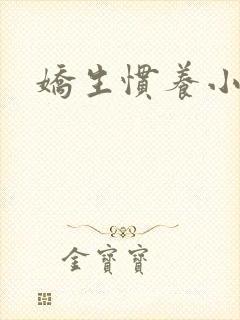 嬌生慣養小
金寶寶